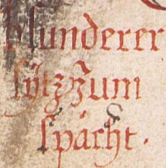 sunderer
sytz zum
spächt.